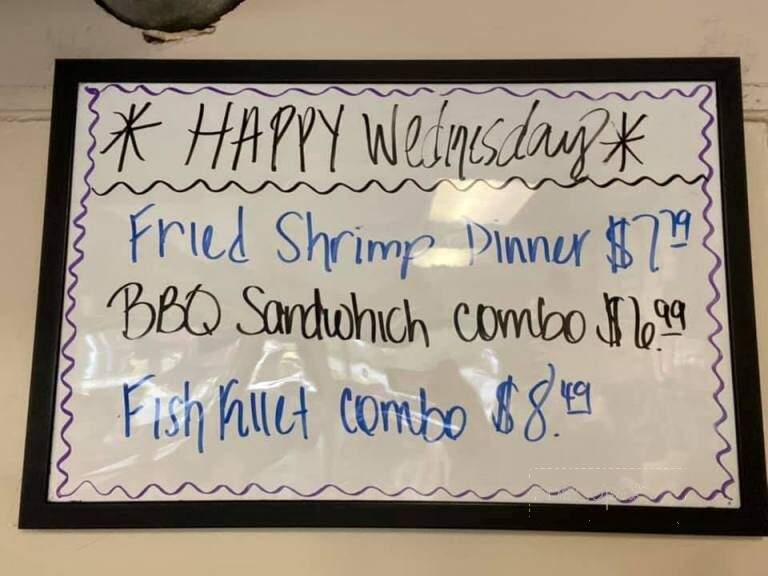 * HAPPY Wednesday *
Fried Shrimp Dinner $7.79
BBQ Sandwhich combo $6.99
Fish Fillet combo $8.49